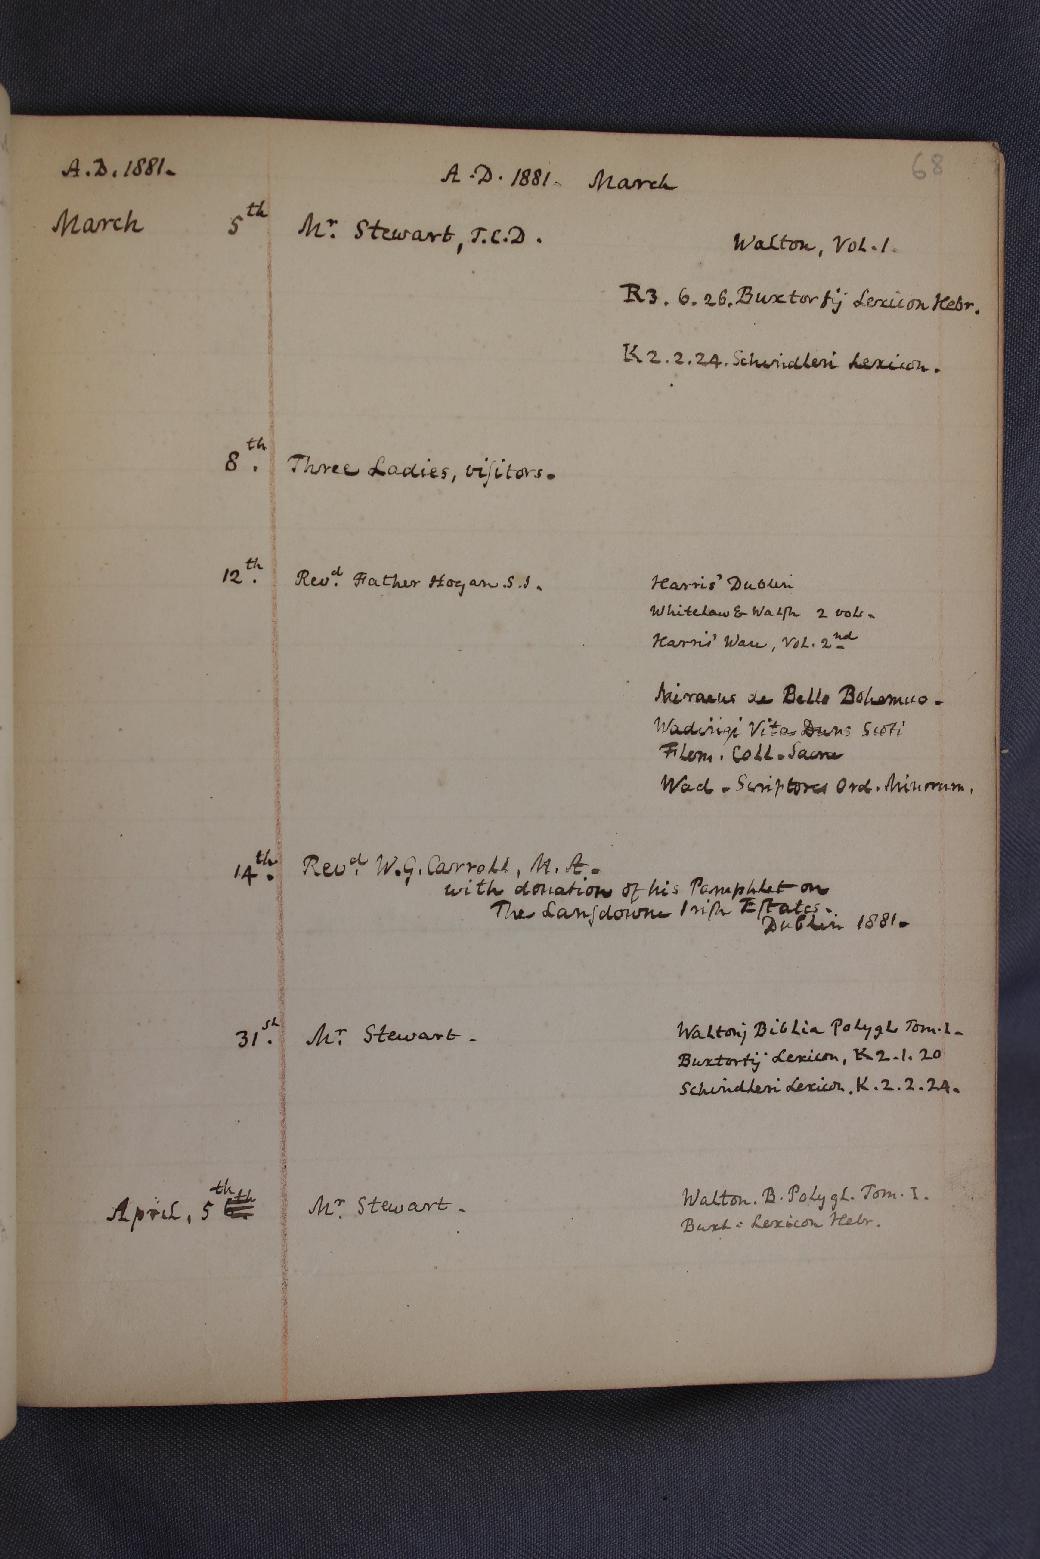 68
A.D. 1881.
A.D. 1881. March
March 5th Mr. Stewart, T.C.D. Walton, Vol. 1.
R3. 6. 26. Buxtorfij Lexicon Hebr.
K 2. 2. 24. Schindleri Lexicon.
8th. Three Ladies, viſitors.
12th. Revd. Father Hogan. S.J. Harris' Dublin
Whitelaw & Walſh 2 vols.
Harris' Ware, Vol. 2nd
Miraeus de Bello Bohemico.
Wadingi Vita Duns Scoti
Flem. Coll. Sacra
Wad. Scriptores Ord. Minorum.
14th. Revd. W. G. Carroll, M. A.
with donation of his Pamphlet on
The Lanſdowne Iriſh Eſtates.
Dublin 1881.
31st. Mr. Stewart. Waltonj Biblia Polygl. Tom. 1.
Buxtorfij Lexicon, K 2. 1. 20
Schindleri Lexicon, K. 2. 2. 24.
April, 5th Mr. Stewart. Walton. B. Polygl. Tom. I.
Buxt. Lexicon Hebr.